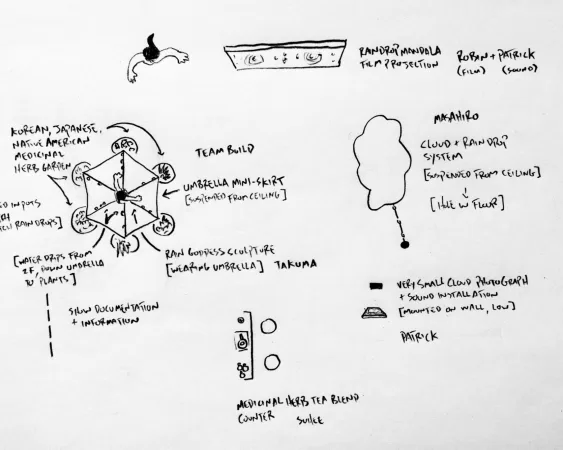 RAINDROP MANDALA
FILM PROJECTION
ROBAN + PATRICK
(FILM) (SOUND)
KOREAN, JAPANESE,
NATIVE AMERICAN
MEDICINAL
HERB GARDEN
TEAM BUILD
UMBRELLA MINI-SKIRT
[SUSPENDED FROM CEILING]
MASAHIRO
CLOUD + RAINDROP
SYSTEM
[SUSPENDED FROM CEILING]
[HOLE IN FLOOR]
INPUTS
RAINDROPS]
[WATER DRIPS FROM
2F, DOWN UMBRELLA
TO PLANTS]
RAIN GODDESS SCULPTURE
[WEARING UMBRELLA] TAKUMA
SLOW DOCUMENTATION
+ INFORMATION
VERY SMALL CLOUD PHOTOGRAPH
+ SOUND INSTALLATION
[MOUNTED ON WALL, LOW]
PATRICK
MEDICINAL HERB TEA BLEND
COUNTER